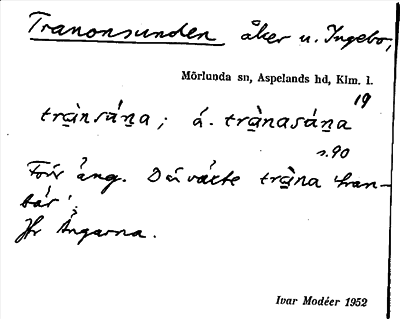 Tranonsunden åker u. Ingebo,
Mörlunda sn, Aspelands hd, Klm. l.
19
trànsána; á. trànasána
s. 90
Förr äng. Då växte tràna tran-
bär'.
Jfr Ängarna.
Ivar Modéer 1952